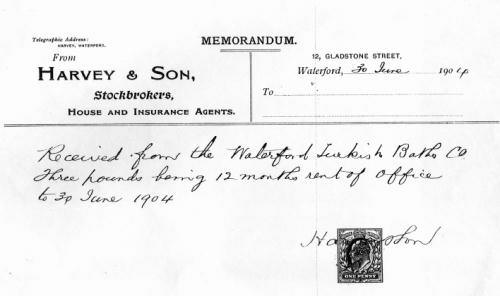 Telegraphic Address:
HARVEY, WATERFORD.
MEMORANDUM.
From
HARVEY & SON,
Stockbrokers,
HOUSE AND INSURANCE AGENTS.
12, GLADSTONE STREET,
Waterford, 30 June 1904
To
Received from the Waterford Turkish Baths Co
Three pounds being 12 months rent of office
to 30 June 1904
Son
ONE PENNY